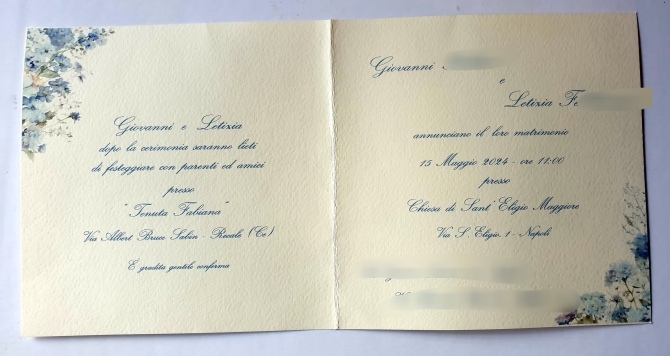 Giovanni e Letizia
dopo la cerimonia saranno lieti
di festeggiare con parenti ed amici
presso
"Tenuta Fabiana"
Via Albert Bruce Sabin - Recale (Ce)
È gradita gentile conferma
Giovanni
e
Letizia Fe
annunciano il loro matrimonio
15 Maggio 2024 - ore 11:00
presso
Chiesa di Sant'Eligio Maggiore
Via S. Eligio, 1 - Napoli